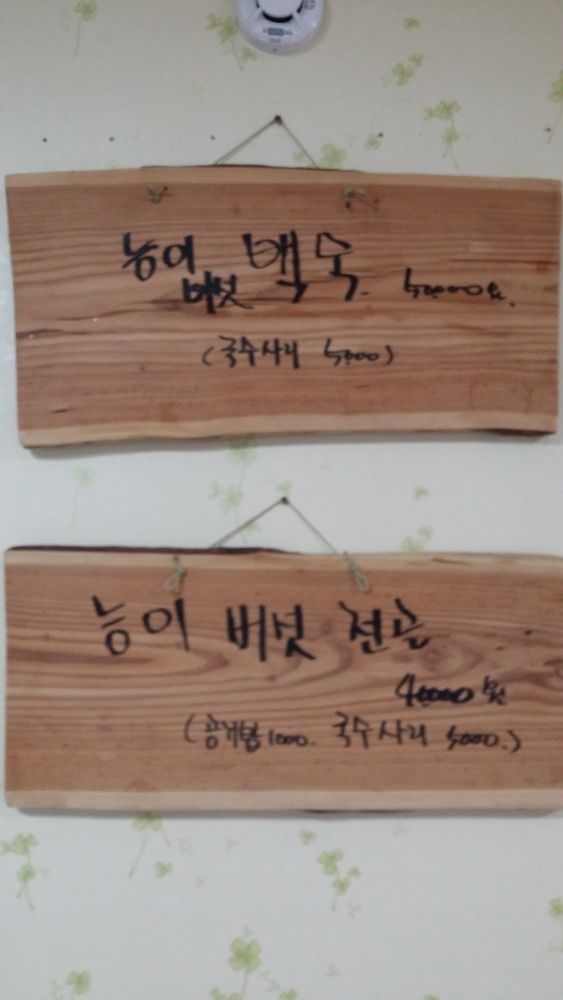 능이 백숙 50000원.
버섯
(국수사리 5000)
능이 버섯 전골
40000원
(공기밥 1000. 국수사리 5000.)